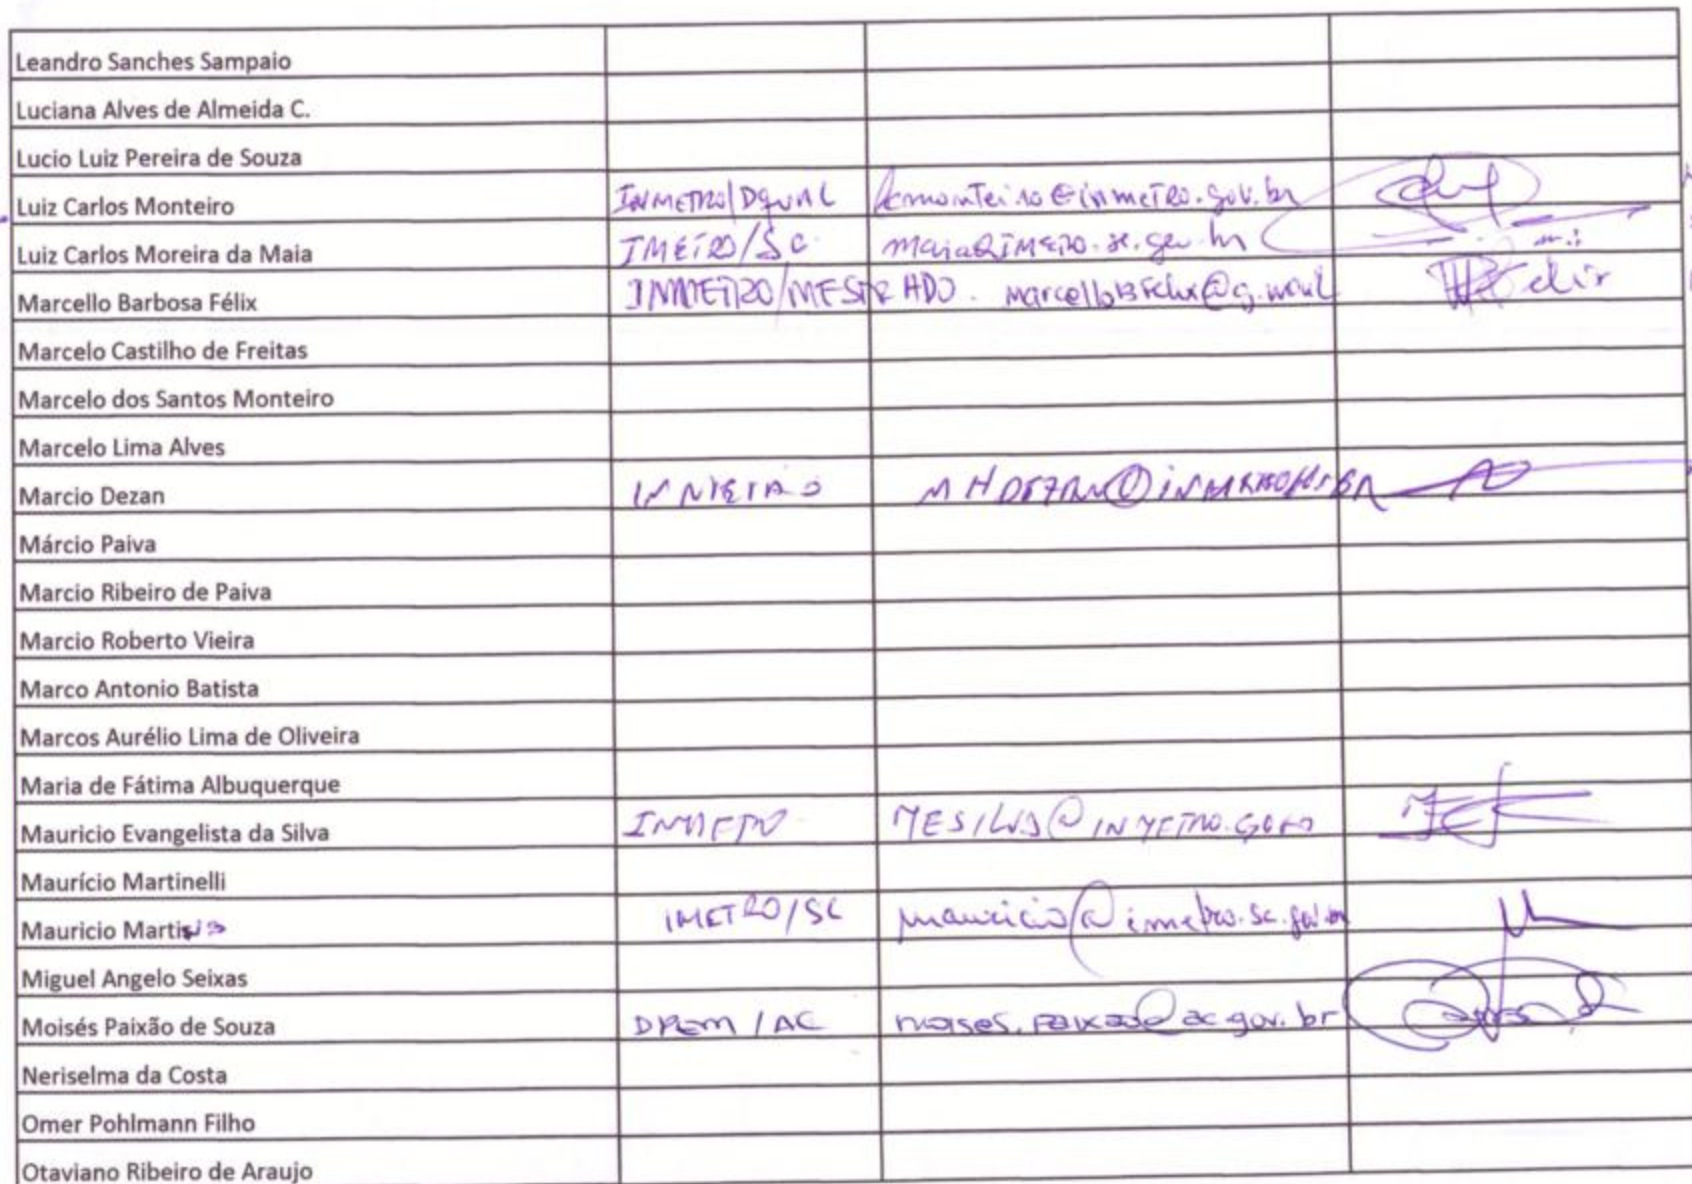 Leandro Sanches Sampaio
Luciana Alves de Almeida C.
Lucio Luiz Pereira de Souza
Luiz Carlos Monteiro INMETRO/DQUAL lcmonteiro@inmetro.gov.br
Luiz Carlos Moreira da Maia IMETRO/SC maia@IMETRO.sc.gov.br
Marcello Barbosa Félix INMETRO/MESTRADO. marcellobfelix@g.mail
Marcelo Castilho de Freitas
Marcelo dos Santos Monteiro
Marcelo Lima Alves
Marcio Dezan INMETRO
Márcio Paiva
Marcio Ribeiro de Paiva
Marcio Roberto Vieira
Marco Antonio Batista
Marcos Aurélio Lima de Oliveira
Maria de Fátima Albuquerque
Mauricio Evangelista da Silva INMETRO
Maurício Martinelli
Mauricio Martins IMETRO/SC mauricio@imetro.sc.gov.br
Miguel Angelo Seixas
Moisés Paixão de Souza IPEM/AC moises.paixao@ac.gov.br
Neriselma da Costa
Omer Pohlmann Filho
Otaviano Ribeiro de Araujo